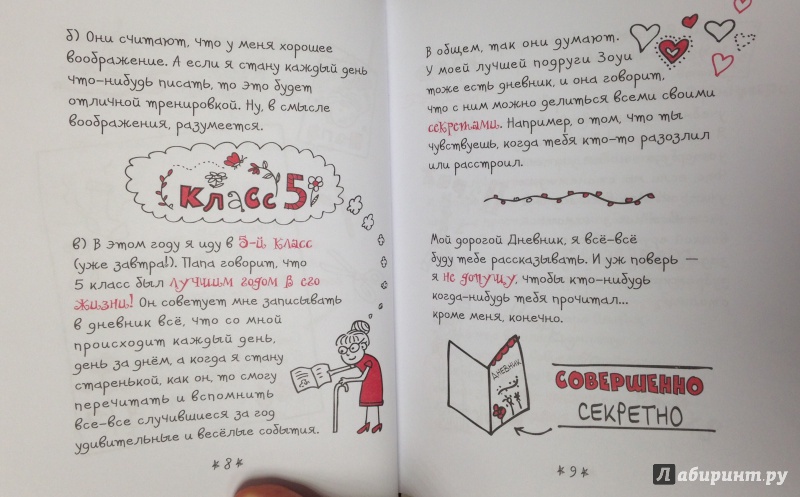 б) Они считают, что у меня хорошее
воображение. А если я стану каждый день
что-нибудь писать, то это будет
отличной тренировкой. Ну, в смысле
воображения, разумеется.
класс 5
в) В этом году я иду в 5-й класс
(уже завтра!). Папа говорит, что
5 класс был лучшим годом в его
жизни! Он советует мне записывать
в дневник всё, что со мной
происходит каждый день,
день за днём, а когда я стану
старенькой, как он, то смогу
перечитать и вспомнить
все-все случившиеся за год
удивительные и весёлые события.
* 8 *
В общем, так они думают.
У моей лучшей подруги Зоуи
тоже есть дневник, и она говорит,
что с ним можно делиться всеми своими
секретами. Например, о том, что ты
чувствуешь, когда тебя кто-то разозлил
или расстроил.
Мой дорогой Дневник, я всё-всё
буду тебе рассказывать. И уж поверь —
я не допущу, чтобы кто-нибудь
когда-нибудь тебя прочитал...
кроме меня, конечно.
ДНЕВНИК
СОВЕРШЕННО
СЕКРЕТНО
* 9 *
Лабиринт.ру